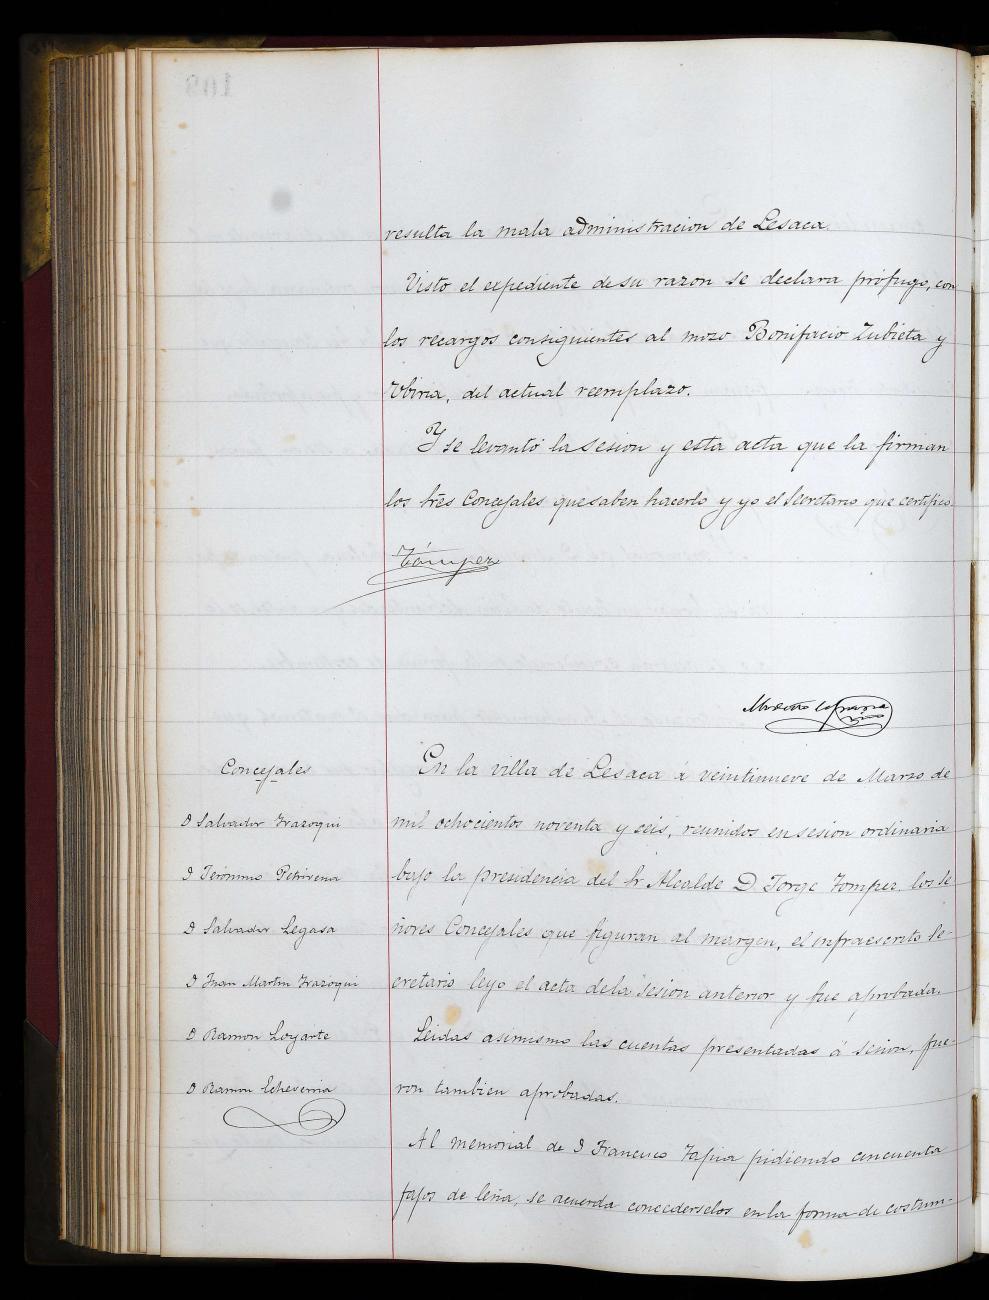 resulta la mala administracion de Lesaca.
Visto el expediente de su razon se declara prófugo, con
los recargos consiguientes al mozo Bonifacio Zubieta y
Ubiria, del actual reemplazo.
Y se levantó la sesion y esta acta que la firman
los trés Concejales que saben hacerlo y yo el Secretario que certifico.
Tómpez
Modesto
Concejales
D Salvador Irazoqui
D Jerónimo Petrirena
D Salvador Legasa
D Juan Martin Irazoqui
D Ramon Loyarte
D Ramon Echeverria
En la villa de Lesaca á veintinueve de Marzo de
mil ochocientos noventa y seis, reunidos en sesion ordinaria
bajo la presidencia del Sr Alcalde D Jorge Tompez, los se
ñores Concejales que figuran al margen, el infraescrito Se-
cretario leyo el acta de la sesion anterior y fue aprobada.
Leidas asimismo las cuentas presentadas á sesion, fue-
ron tambien aprobadas.
Al memorial de D Francisco Tapia pidiendo cincuenta
fajos de leña, se acuerda concederselos en la forma de costum-